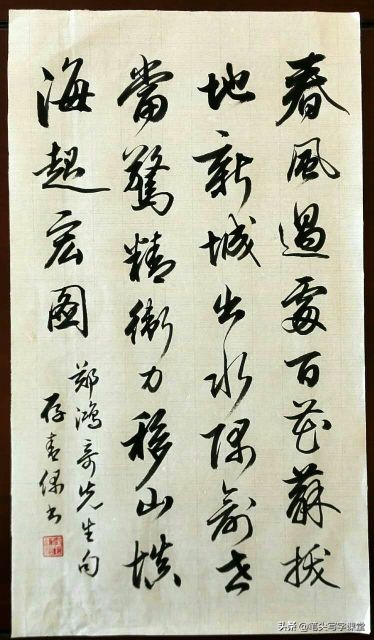 春風過處百花蘇拔
地新城出水隅舉世
當驚精衛力移山填
海起宏圖
鄭鴻先生句
书
头条 @笔头写字课堂